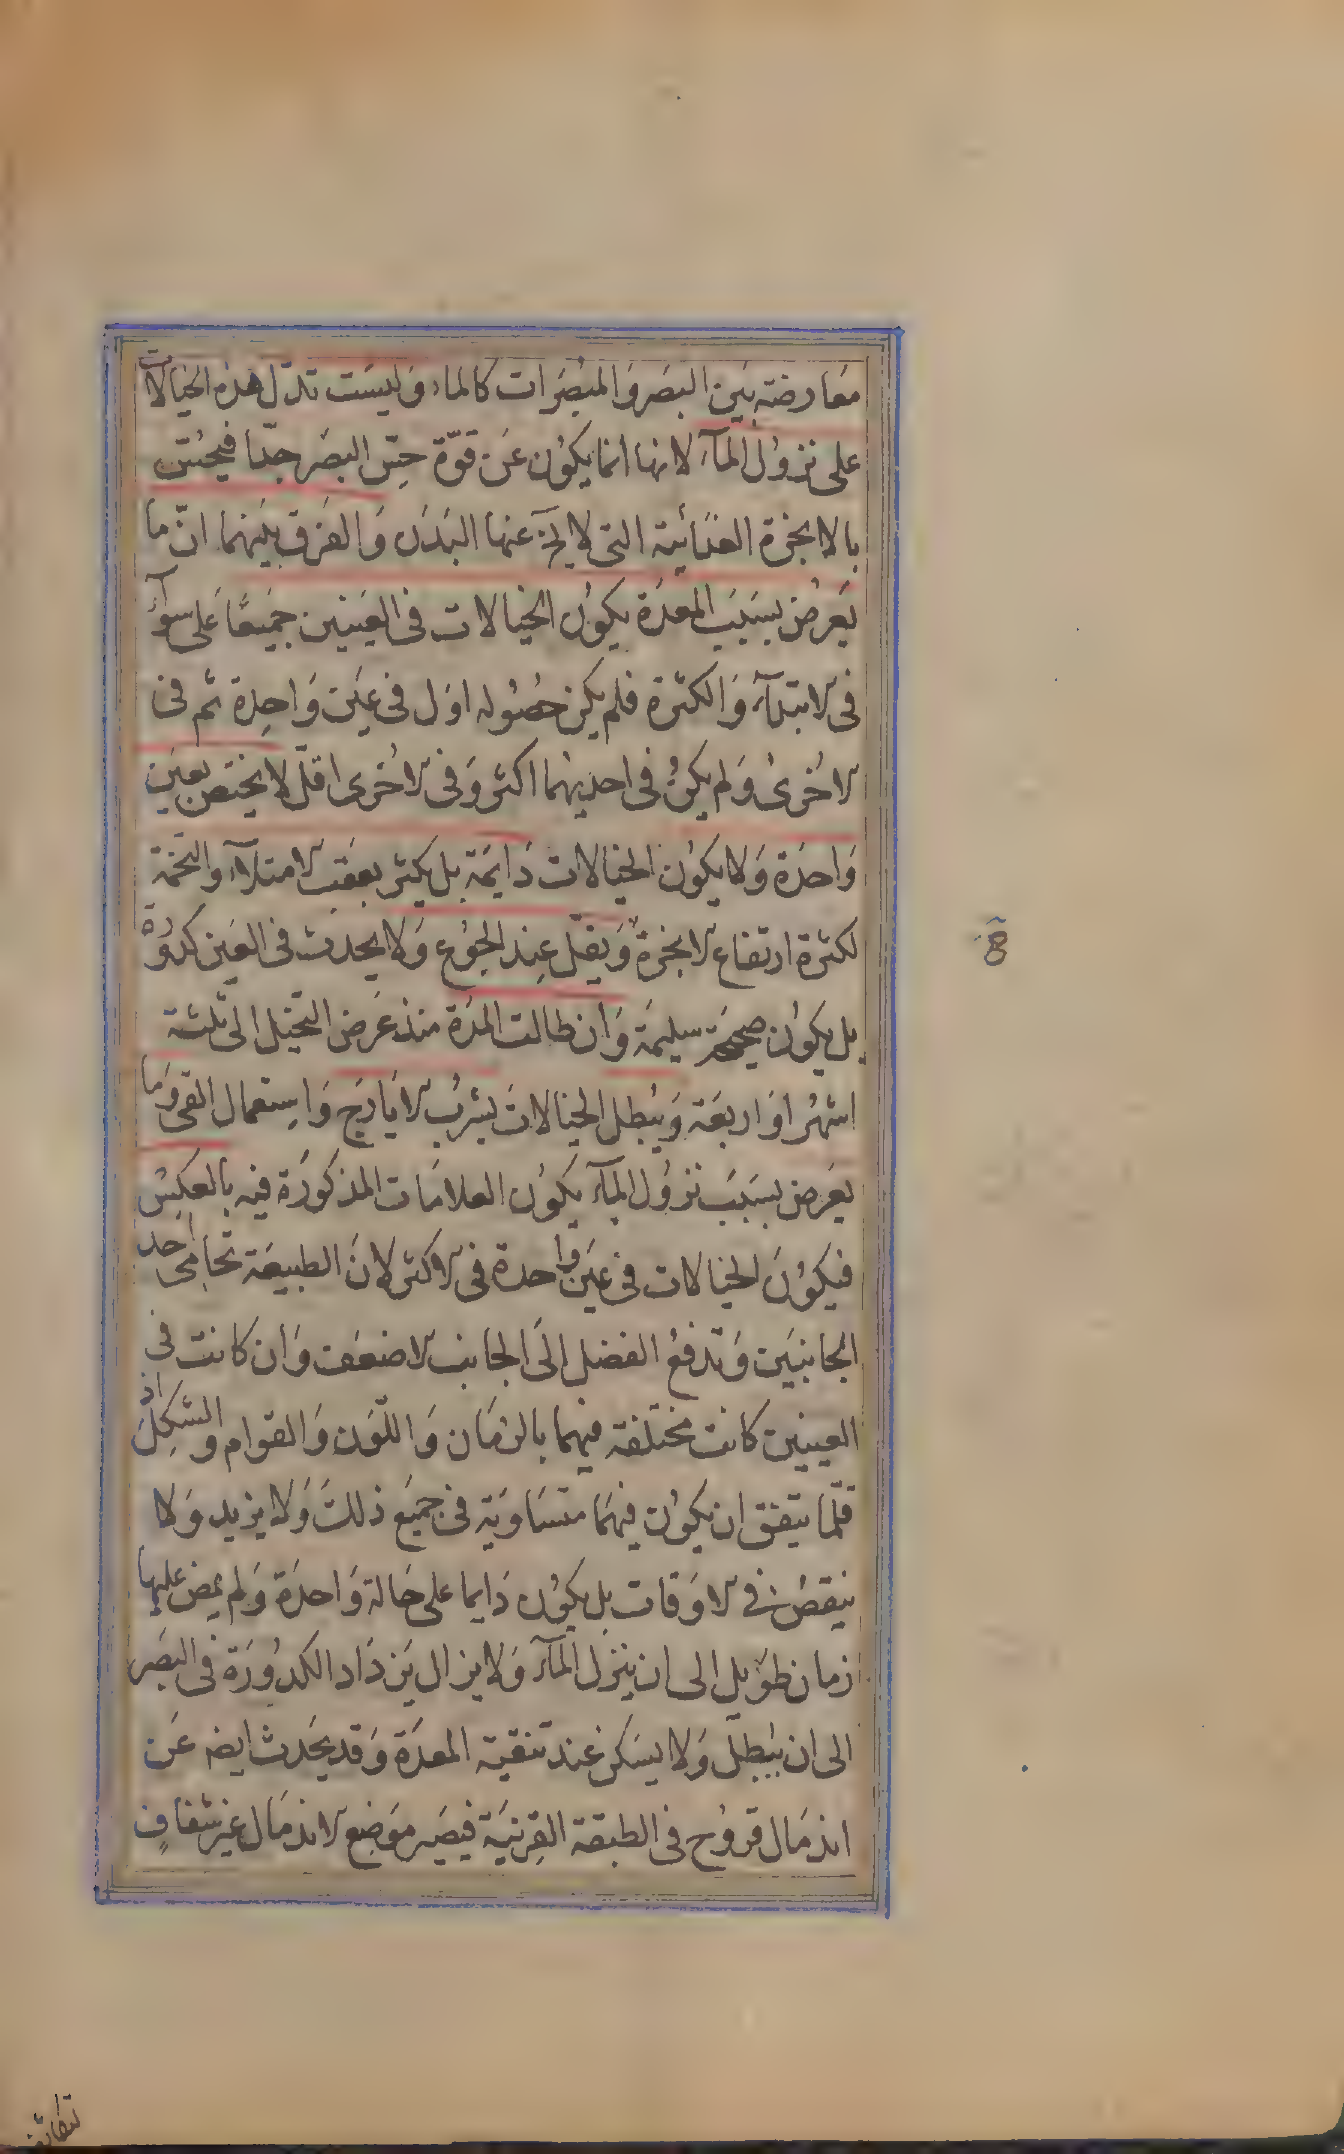 معارضة بين البصر والمبصرات كالماء وليست تدل هذه الخيالات
على نزول المآء لانها انما يكون عن قوّة حسّ البصر جدّا فيحسّ
بالابخرة الغذائية التى لا يخ عنها البدن والفرق بينهما انّ ما
يعرض بسبب المعدة يكون الخيالات فى العينين جميعًا على سوآء
فى الابتدآء والكثرة فلم يكن حصوله اول فى عين واحدة ثم فى
الاخرى ولم يكن فى احديهما اكثر وفى الاخرى اقلّ لا يختص بعين
واحدة ولا يكون الخيالات دايمة بل يكثر بعقب الامتلآء والتخمة
لكثرة ارتفاع الابخرة ويقلّ عند الجوع ولا يحدث فى العين كدورة
بل يكون صحيحة سليمة وان طالت المدة منذ عرض التخيل الى ثلثة
اشهر او اربعة ويبطل الخيالات بشرب الايارج واستعمال القى وما
يعرض بسبب نزول المآء يكون العلامات المذكورة فيه بالعكس
فيكون الخيالات فى عين واحدة فى الاكثر لانّ الطبيعة تحامى احد
الجانبين وتدفع الفضل الى الجانب الاضعف وان كانت فى
العينين كانت مختلفة فيهما بالزمان واللّون والقوام والشكل اذ
قلّما يتفق ان يكون فيهما متساوية فى جميع ذلك ولا يزيد ولا
ينقص فى الاوقات بل يكون دايما على حالة واحدة ولم يمض عليها
زمان طويل الى ان ينزل المآء ولا يزال يزداد الكدورة فى البصر
الى ان يبطل ولا يسكن عند تنقية المعدة وقد يحدث ايضه عن
اندمال قروح فى الطبقة القرنية فيصير موضع الاندمال غير شفاف